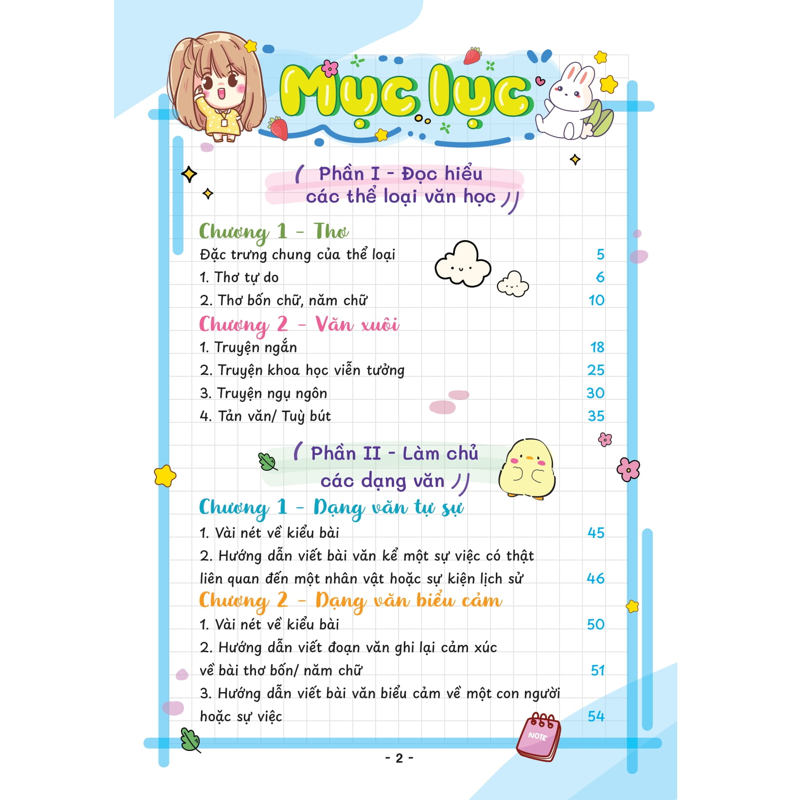 Mục lục
Phần I - Đọc hiểu
các thể loại văn học
Chương 1 - Thơ
Đặc trưng chung của thể loại 5
1. Thơ tự do 6
2. Thơ bốn chữ, năm chữ 10
Chương 2 - Văn xuôi
1. Truyện ngắn 18
2. Truyện khoa học viễn tưởng 25
3. Truyện ngụ ngôn 30
4. Tản văn/ Tuỳ bút 35
Phần II - Làm chủ
các dạng văn
Chương 1 - Dạng văn tự sự
1. Vài nét về kiểu bài 45
2. Hướng dẫn viết bài văn kể một sự việc có thật
liên quan đến một nhân vật hoặc sự kiện lịch sử 46
Chương 2 - Dạng văn biểu cảm
1. Vài nét về kiểu bài 50
2. Hướng dẫn viết đoạn văn ghi lại cảm xúc
về bài thơ bốn/ năm chữ 51
3. Hướng dẫn viết bài văn biểu cảm về một con người
hoặc sự việc 54
NOTE
- 2 -